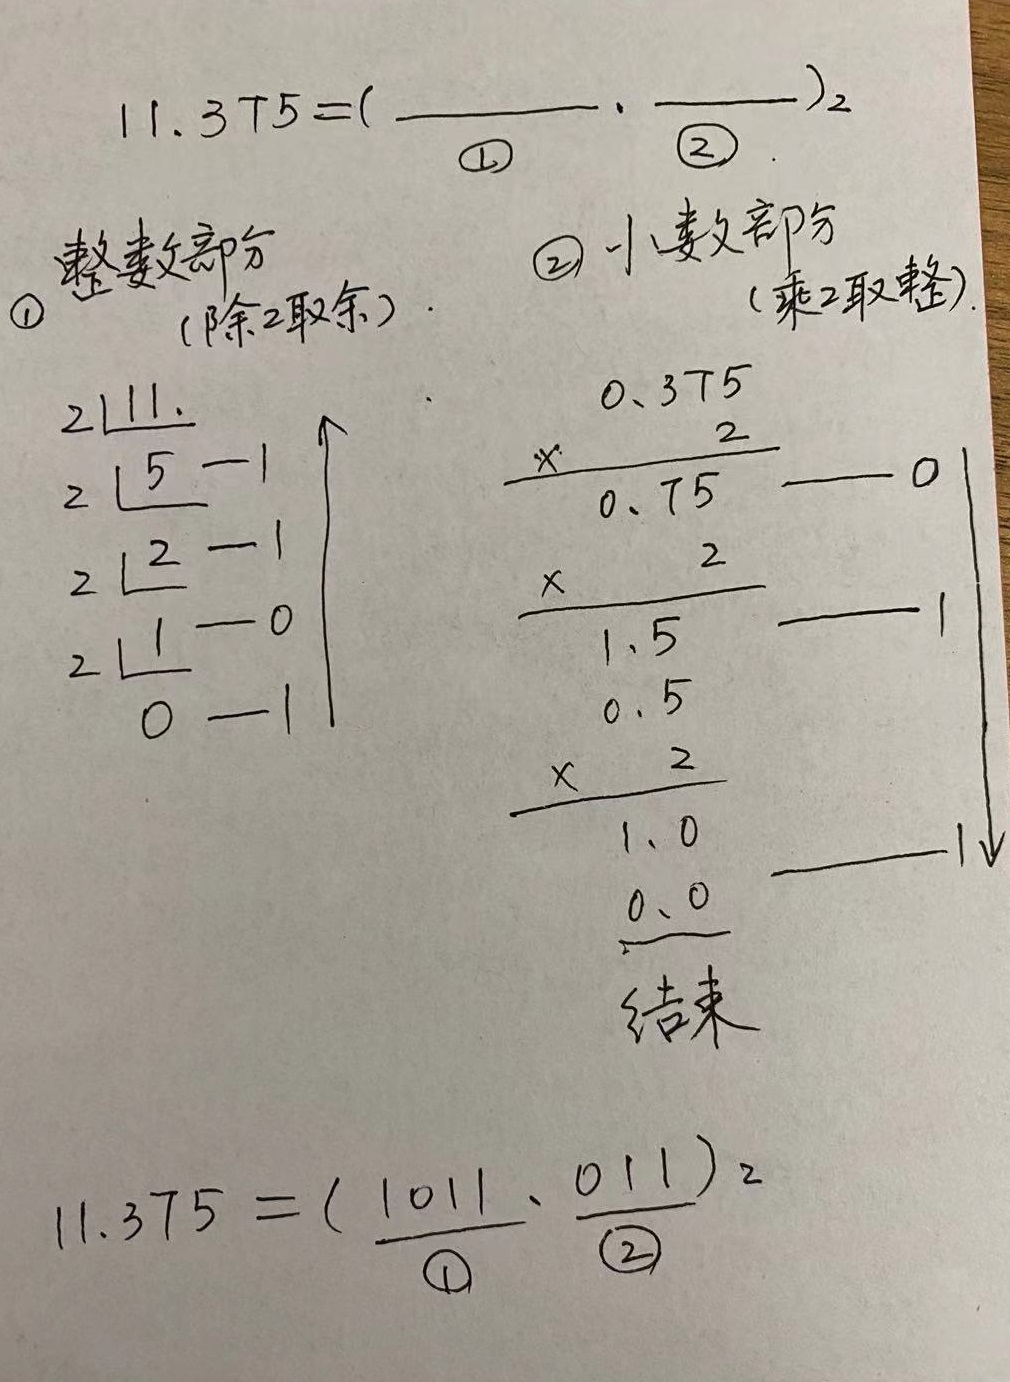 11.375=( ______ . ______ )₂
① ②
① 整数部分
(除2取余)
2 11.
2 5 — 1
2 2 — 1
2 1 — 0
0 — 1
② 小数部分
(乘2取整)
0.375
× 2
0.75 — 0
× 2
1.5 — 1
0.5
× 2
1.0 — 1
0.0
结束
11.375 = ( 1011 . 011 )₂
① ②